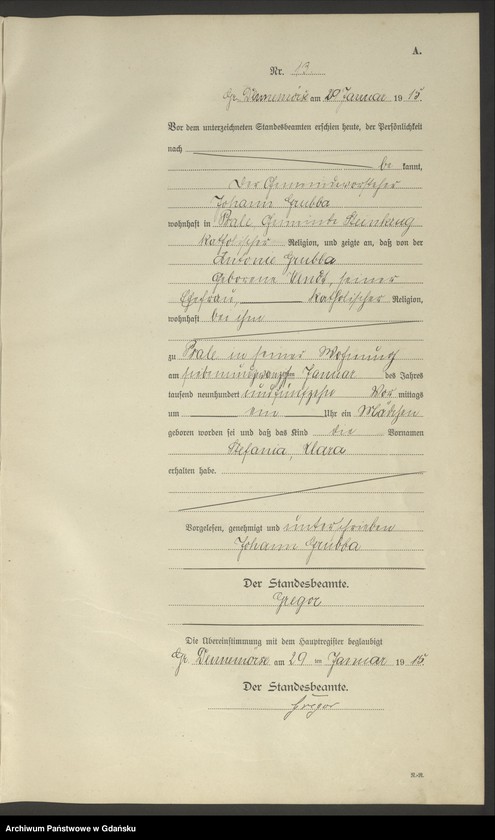 A.
Nr. 13
Gr. Dennemörse am 29 Januar 1915.
Vor dem unterzeichneten Standesbeamten erschien heute, der Persönlichkeit
nach
be kannt,
der Gemeindevorsteher
Johann Grubba
wohnhaft in Gemeinde
katholischer Religion, und zeigte an, daß von der
Antonie Grubba
geborene seiner
Ehefrau, katholischer Religion,
wohnhaft bei ihm
zu in seiner Wohnung
am siebenundzwanzigsten Januar des Jahres
tausend neunhundert undfünfzehn Vor mittags
um ein Uhr ein Mädchen
geboren worden sei und daß das Kind die Vornamen
Stefania, Klara
erhalten habe.
Vorgelesen, genehmigt und unterschrieben
Johann Grubba
Der Standesbeamte.
Gregor
Die Übereinstimmung mit dem Hauptregister beglaubigt
Gr. Dennemörse am 29 ten Januar 1915.
Der Standesbeamte.
Gregor
R.-R.
Archiwum Państwowe w Gdańsku